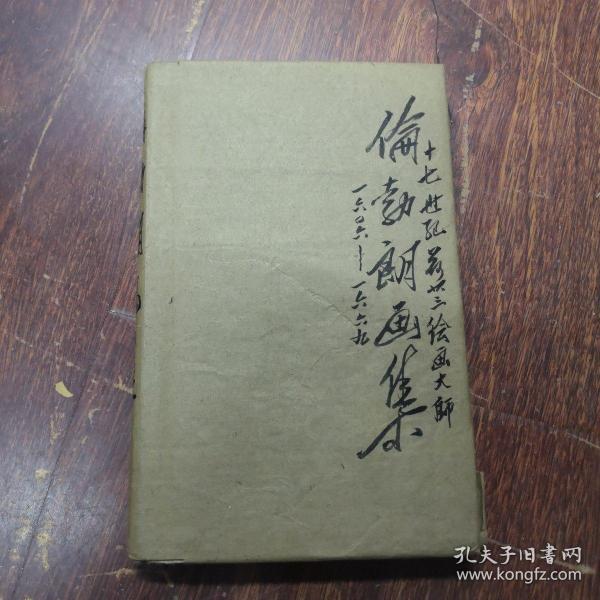 十七世纪荷兰绘画大師
倫勃朗画集
一六〇六—一六六九
孔夫子旧书网
www.kongfz.com